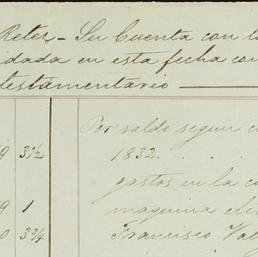 Retes – Su Cuenta con l
idada en esta fecha con
testamentario
Por saldo segun c
9 3½ 1832.
gastos en la c
9 1 maquina ele
0 3¾ Francisco Val